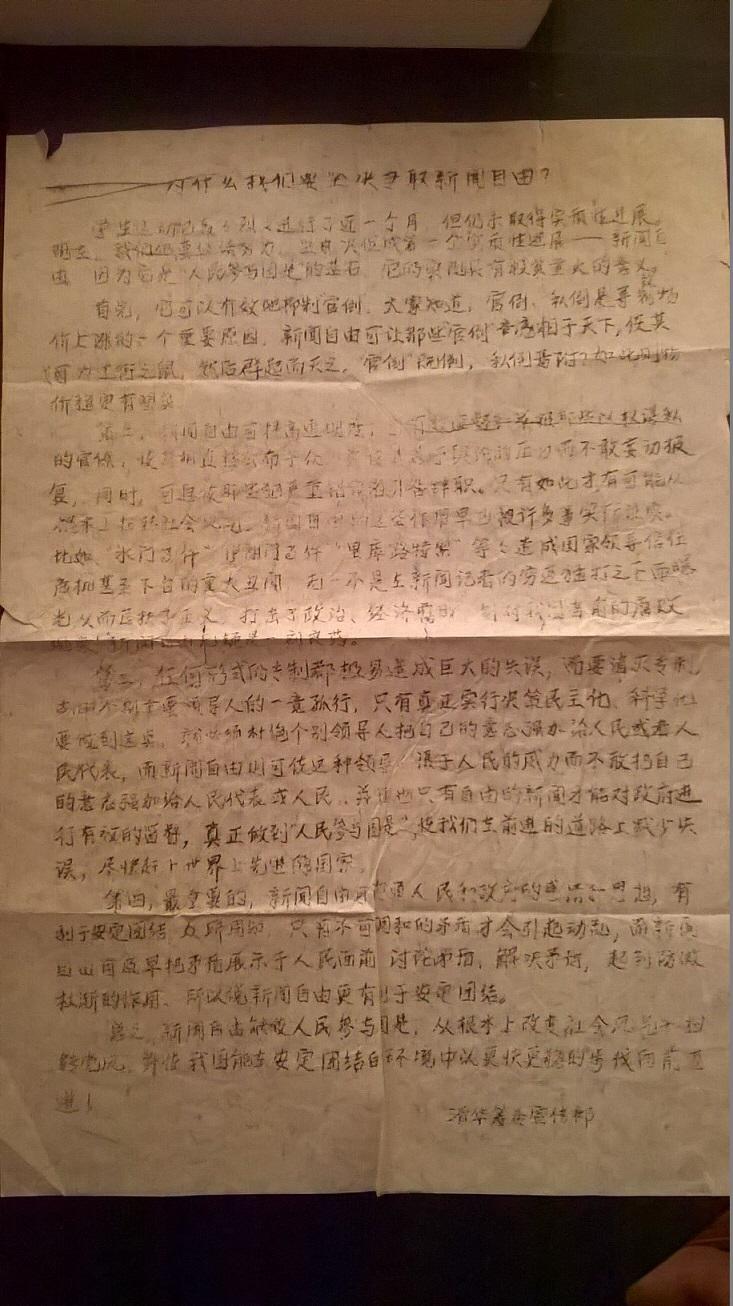 为什么我们要坚决争取新闻自由?
学生运动已轰轰烈烈进行了近一个月,但仍未取得实质性进展。
我们还要继续努力,坚决促成第一个实质性进展——新闻自
由。因为它是"人民参与国是"的基石,它的实现具有极其重大的意义。
首先,它可以有效地抑制官倒。大家知道,官倒、私倒是导致物
价上涨的一个重要原因。新闻自由可让那些"官倒"曝光于天下,使其
成为过街之鼠,然后群起而灭之。"官倒"既倒,私倒焉附?如此则物
价稳定有望矣
第二,新闻自由可提高透明度,
的官僚,使其 公布于众 慑于舆论的压力而不敢妄动报
复,同时,可迫使那些犯严重错误者引咎辞职。只有如此才有可能从
根本上扭转社会风气。新闻自由的这些作用早已被许多事实所证实。
比如,"水门事件""伊朗门事件""里库路特案"等等造成国家领导信任
危机甚至下台的重大丑闻,无一不是在新闻记者的穷追猛打之下而曝
光从而匡扶了正义,打击了政治、经济腐败 针对我国当前的腐败
现象,新闻自由 是一剂良药。
第三,任何形式的专制都极易造成巨大的失误,而要消灭专制,
去除个别主要领导人的一意孤行,只有真正实行决策民主化、科学化
要做到这点,就必须杜绝个别领导人把自己的意志强加给人民或者人
民代表,而新闻自由则可使这种领导 慑于人民的威力而不敢把自己
的意志强加给人民代表或人民。并且也只有自由的新闻才能对政府进
行有效的监督,真正做到"人民参与国是",使我们在前进的道路上减少失
误,尽快赶上世界上先进的国家。
第四,最重要的,新闻自由可沟通人民和政府的感情和思想,有
利于安定团结。众所周知,只有不可调和的矛盾才会引起动乱,而新闻
自由可及早把矛盾展示于人民面前,讨论矛盾,解决矛盾,起到防微
杜渐的作用。所以说新闻自由更有利于安定团结。
总之,新闻自由能使人民参与国是,从根本上改变社会风气
并使我国能在安定团结的环境中以更快更稳的步伐向前迈
进!
清华筹委宣传部